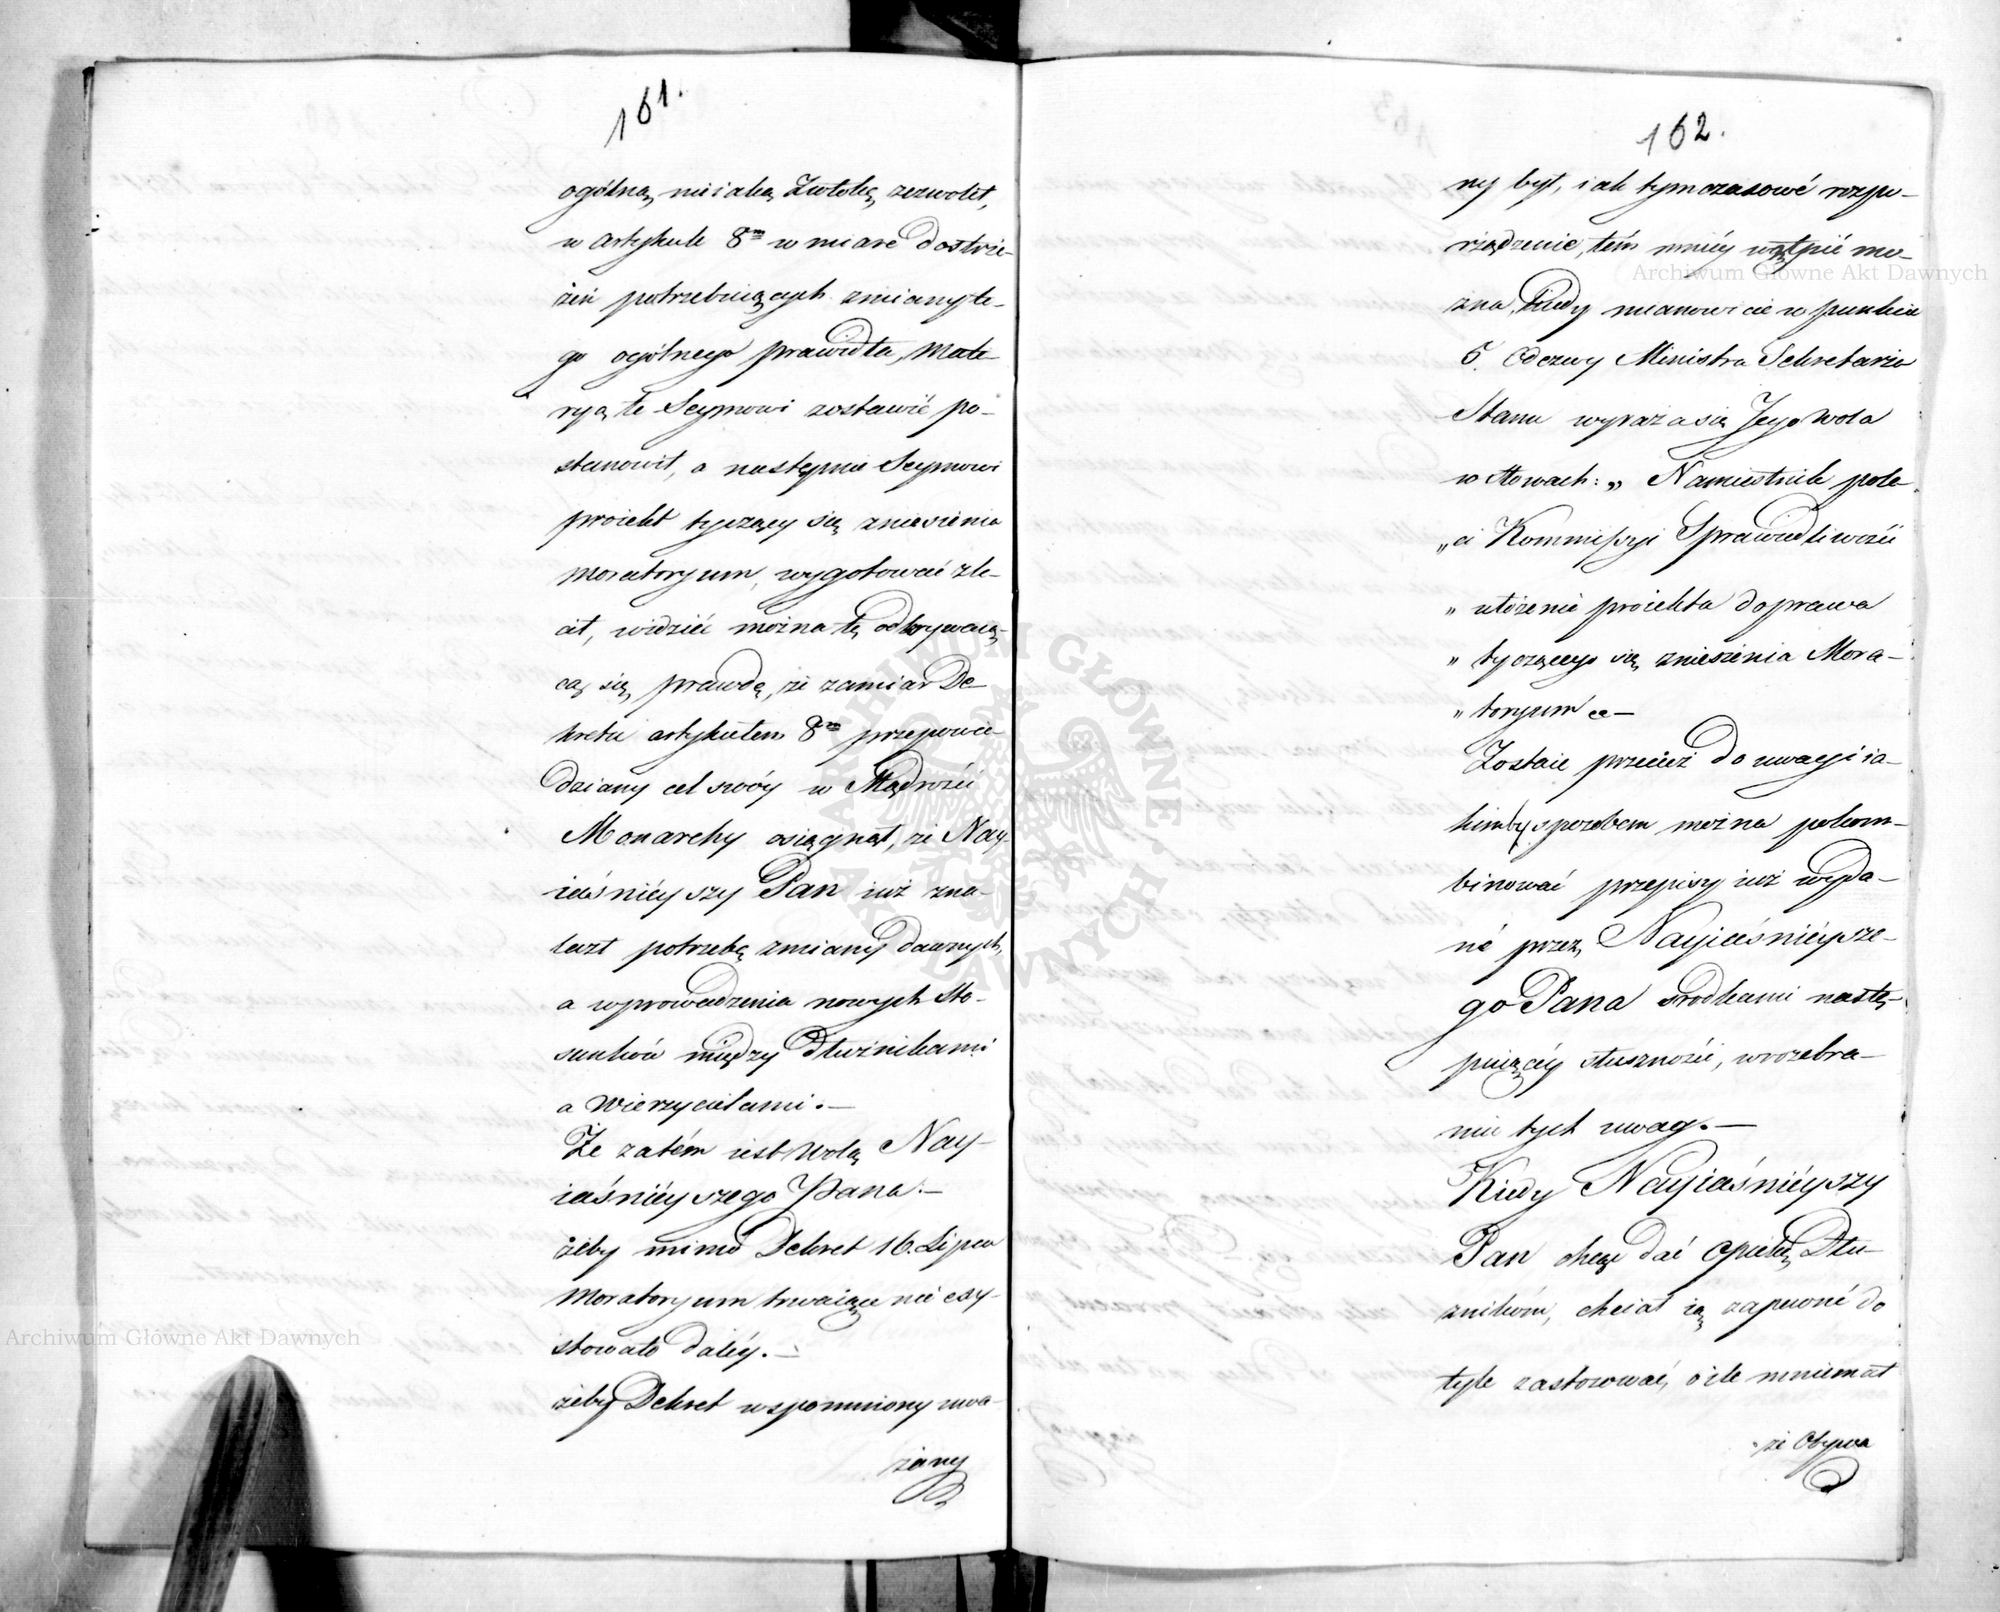 161.
ogólną niejaką Zwłokę zezwolił,
w artykule 8m w miarę dostrze-
żeń potrzebuiących zmiany te-
go ogólnego prawidła, Mate-
ryą tę Seymowi zostawić po-
stanowił, a następnie Seymowi
proiekt tyczący się zniesienia
Moratoryum, wygotować zle-
cił, widzieć można tę odkrywaią-
cą się prawdę, że zamiar De-
kretu artykułem 8m przepowie-
dziany cel swóy w Mądrości
Monarchy osiągnął, że Nay-
iaśnieyszy Pan iuż zna-
lazł potrzebę zmiany dawnych,
a wprowadzenia nowych sto-
sunków między Dłużnikami
a Wierzycielami.—
Że zatém iest Wolą Nay-
iaśniéyszego Pana.—
żeby mimo Dekret 16. Lipca
Moratoryum trwaiące nie exy-
stowało daléy.—
żeby Dekret wspomniony uwa-
żany
162.
ny był, iak tymczasowé rozpo-
rządzenie, tém mniéy wątpić mo-
żna, kiedy mianowicie w punkcie
5. Odezwy Ministra Sekretarza
Stanu wyraża się Jego Wola
w słowach: „ Namiestnik pole-
„ ci Kommissyi Sprawiedliwości
„ ułożenie proiektu do prawa
„ tyczącego się zniesienia Mora-
„ toryum
Zostaie przecież do uwagi ia-
kimby sposobem można pokom-
binować przepisy iuż wyda-
né przez Nayiaśniéysze-
go Pana srodkami nastę-
puiącéy słuszności, w rozebra-
niu tych uwag.—
Kiedy Nayiaśniéyszy
Pan chcąc dać opiekę Dłu-
żnikóm, chciał ią zapewné do
tyle zastosować, o ile mniemał
że Obywa